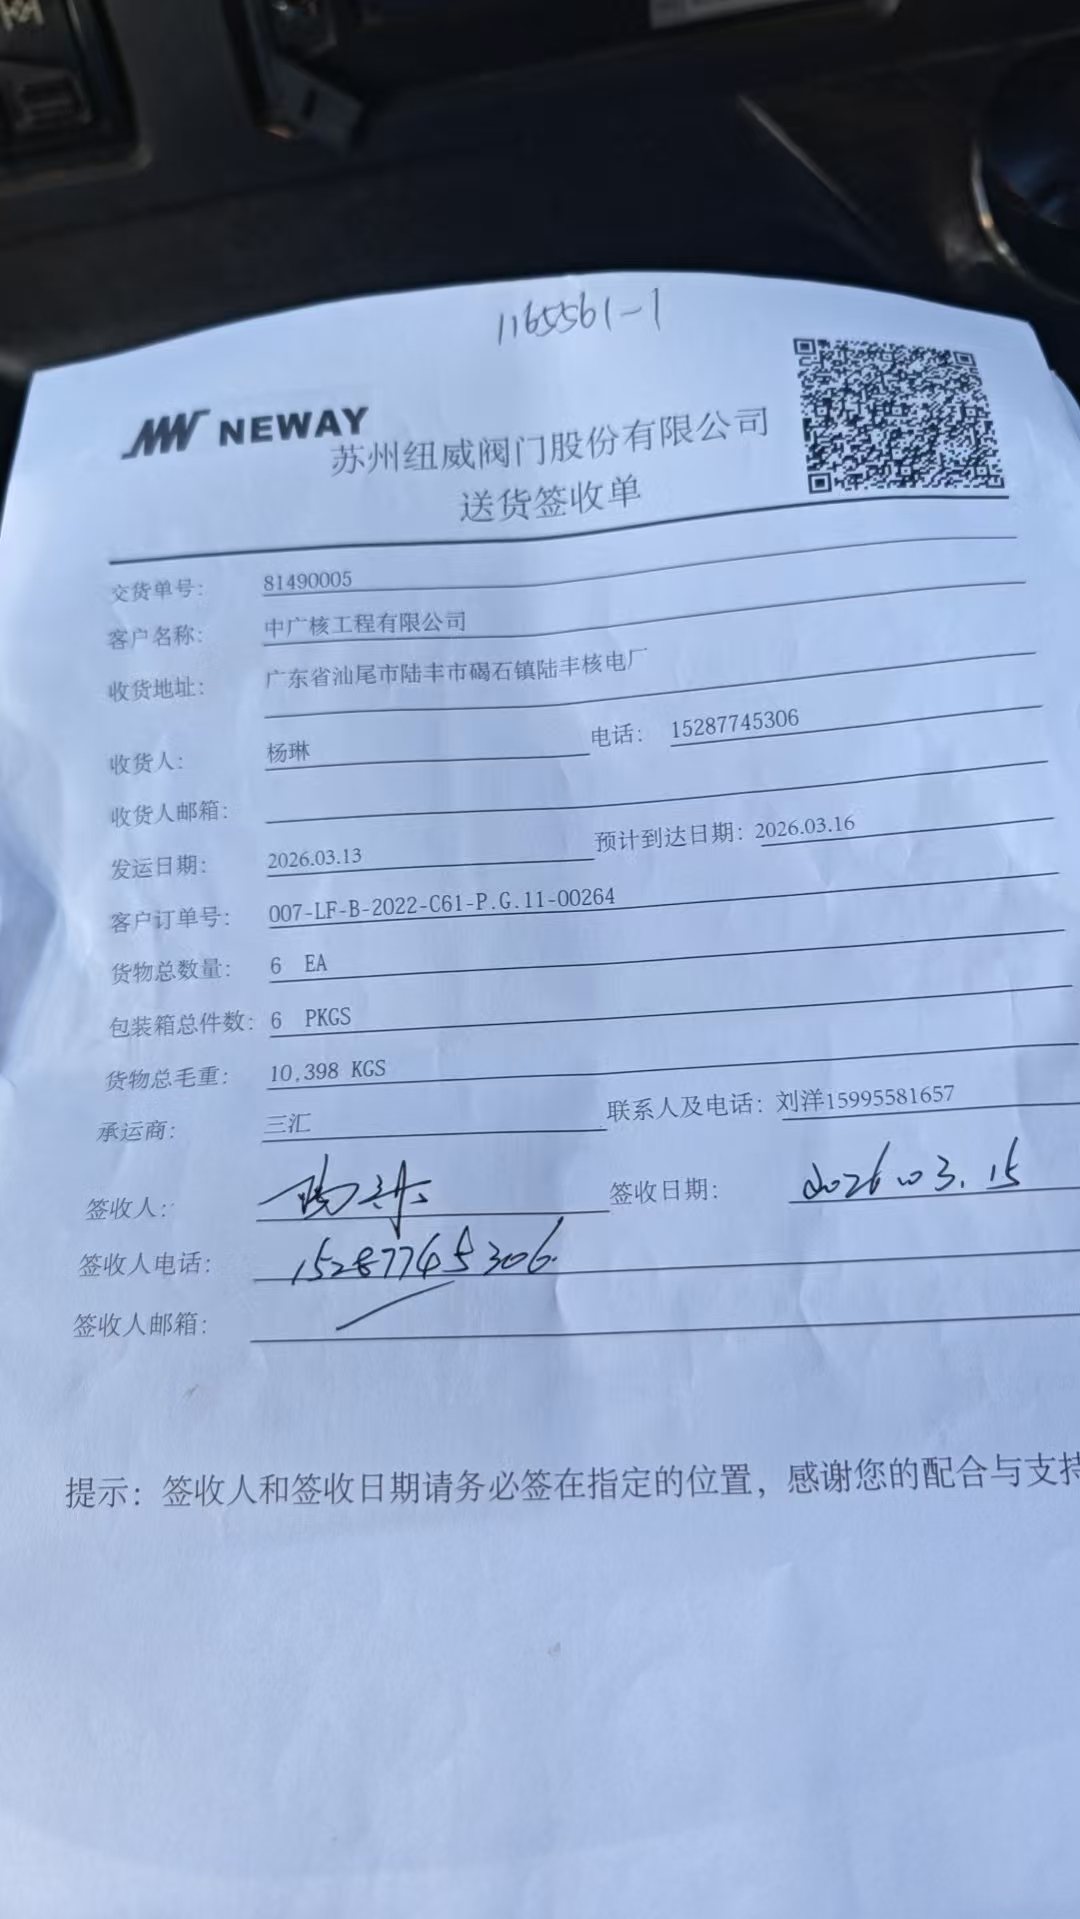 1165561-1
NEWAY
苏州纽威阀门股份有限公司
送货签收单
交货单号: 81490005
客户名称: 中广核工程有限公司
收货地址: 广东省汕尾市陆丰市碣石镇陆丰核电厂
收货人: 杨琳 电话: 15287745306
收货人邮箱:
发运日期: 2026.03.13 预计到达日期: 2026.03.16
客户订单号: 007-LF-B-2022-C61-P.G.11-00264
货物总数量: 6 EA
包装箱总件数: 6 PKGS
货物总毛重: 10,398 KGS
承运商: 三汇 联系人及电话: 刘洋15995581657
签收人: 杨琳 签收日期: 2026.03.15
签收人电话: 15287745306.
签收人邮箱:
提示: 签收人和签收日期请务必签在指定的位置，感谢您的配合与支持